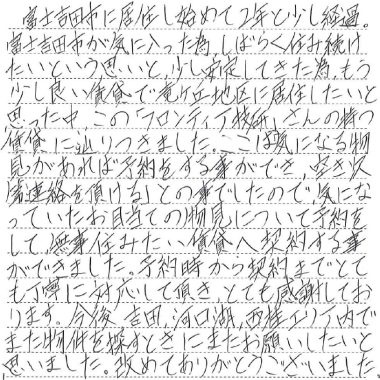 富士吉田市に居住し始めて2年と少し経過。
富士吉田市が気に入った為、しばらく住み続け
たいという思いと、少し安定してきた為、もう
少し良い賃貸で竜ヶ丘地区に居住したいと
思った中、この「フロンティア技研」さんの持つ
賃貸に辿りつきました。ここは気になる物
件があれば予約をする事ができ、空き次
第連絡を頂ける」との事でしたので、気にな
っていたお目当ての物件について予約を
して、無事住みたい賃貸へ契約する事
ができました。予約時から契約までとて
も丁寧に対応して頂き、とても感謝してお
ります。今後、吉田、河口湖、西桂エリア内で
また物件を探すときにまたお願いしたいと
思いました。改めてありがとうございました。